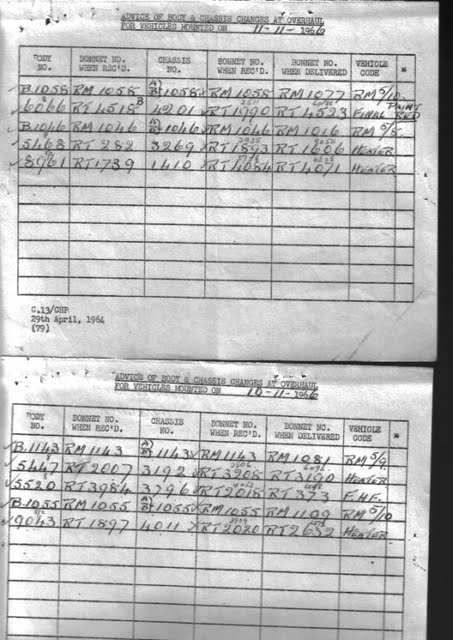 ADVICE OF BODY & CHASSIS CHANGES AT OVERHAUL
FOR VEHICLES MOUNTED ON 11-11-1966
BODY NO. BONNET NO. WHEN REC'D. CHASSIS NO. BONNET NO. WHEN REC'D. BONNET NO. WHEN DELIVERED VEHICLE CODE *
B.1058 RM 1058 1058 RM 1058 RM 1077 RM 5/10
6066 RT 4518 4201 RT 1990 RT 4523 FINAL PAINT RED
B.1046 RM 1046 1046 RM 1046 RM 1016 RM 5/8
5468 RT 282 3269 RT 1893 RT 1606 HEATER
8961 RT 1739 1410 RT 4084 RT 4071 HEATER
C.13/CHP
29th April, 1964
(79)
ADVICE OF BODY & CHASSIS CHANGES AT OVERHAUL
FOR VEHICLES MOUNTED ON 10-11-1966
BODY NO. BONNET NO. WHEN REC'D. CHASSIS NO. BONNET NO. WHEN REC'D. BONNET NO. WHEN DELIVERED VEHICLE CODE *
B.1143 RM 1143 1143 RM 1143 RM 1081 RM 5/9
5447 RT 2007 3192 RT 3208 RT 3190 HEATER
5520 RT 3984 3796 RT 2018 RT 373 F.H.F.
B.1055 RM 1055 1055 RM 1055 RM 1109 RM 5/10
9043 RT 1897 4011 RT 2020 RT 2632 HEATER